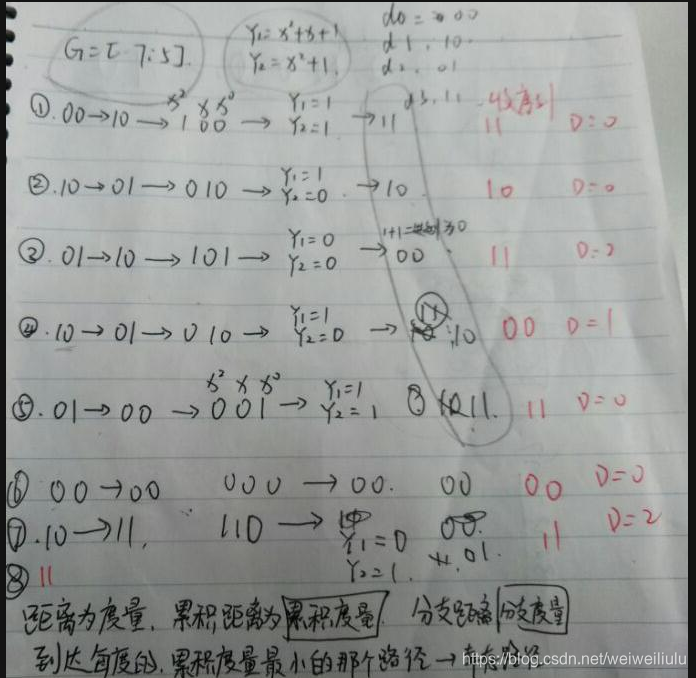 G=[7:5]
Y₁=x²+x+1
Y₂=x²+1.
d0 = 00
d1, 10
d2, 01
d3, 11
x² x x⁰
①. 00→10→ 1 00 → Y₁=1 Y₂=1 →11 11 D=0
②. 10→01→ 010 → Y₁=1 Y₂=0 →10 10 D=0
1+1=
③. 01→10→ 101 → Y₁=0 Y₂=0 → 00 11 D=2
④. 10→01→ 0 10 → Y₁=1 Y₂=0 → 10 00 D=1
x² x x⁰
⑤. 01→00 → 001 → Y₁=1 Y₂=1 11 11 D=0
⑥ 00→00 000 → 00. 00 00 D=0
⑦. 10→11. 110 → Y₁=0 Y₂=1. 01. 11 D=2
⑧ 11
距离为度量, 累积距离为累积度量. 分支距离 分支度量
到达 的, 累积度量最小的那个路径→
https://blog.csdn.net/weiweiliulu